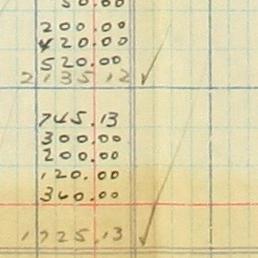 200.00
420.00
520.00
2135.12
745.13
300.00
200.00
120.00
360.00
1725.13